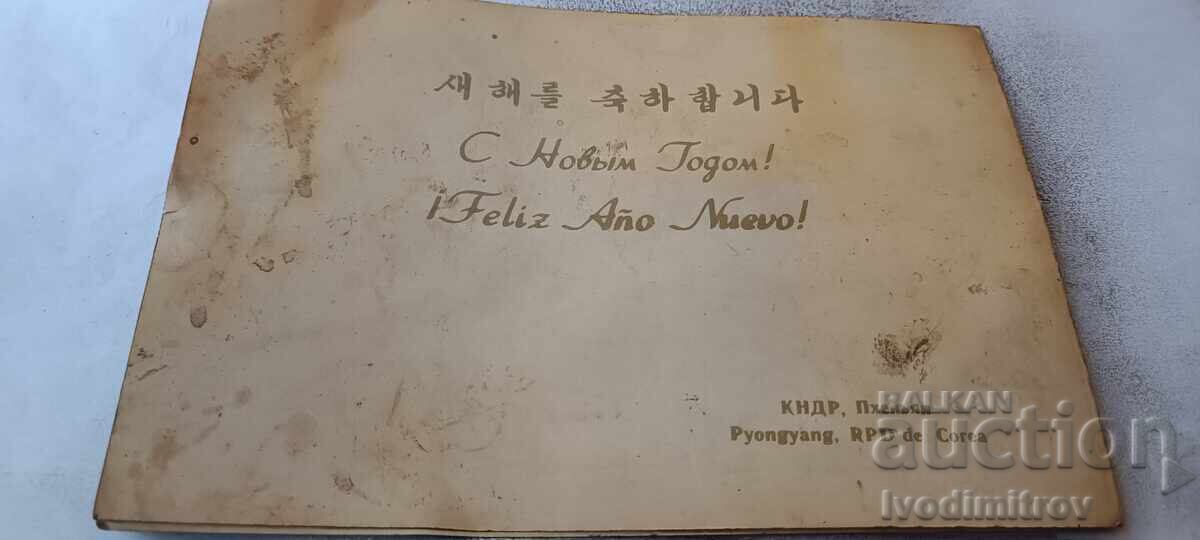 새해를 축하합니다
С Новым Годом!
¡Feliz Año Nuevo!
КНДР, Пхеньян
Pyongyang, RPD de Corea
BALKAN
auction
Ivodimitrov